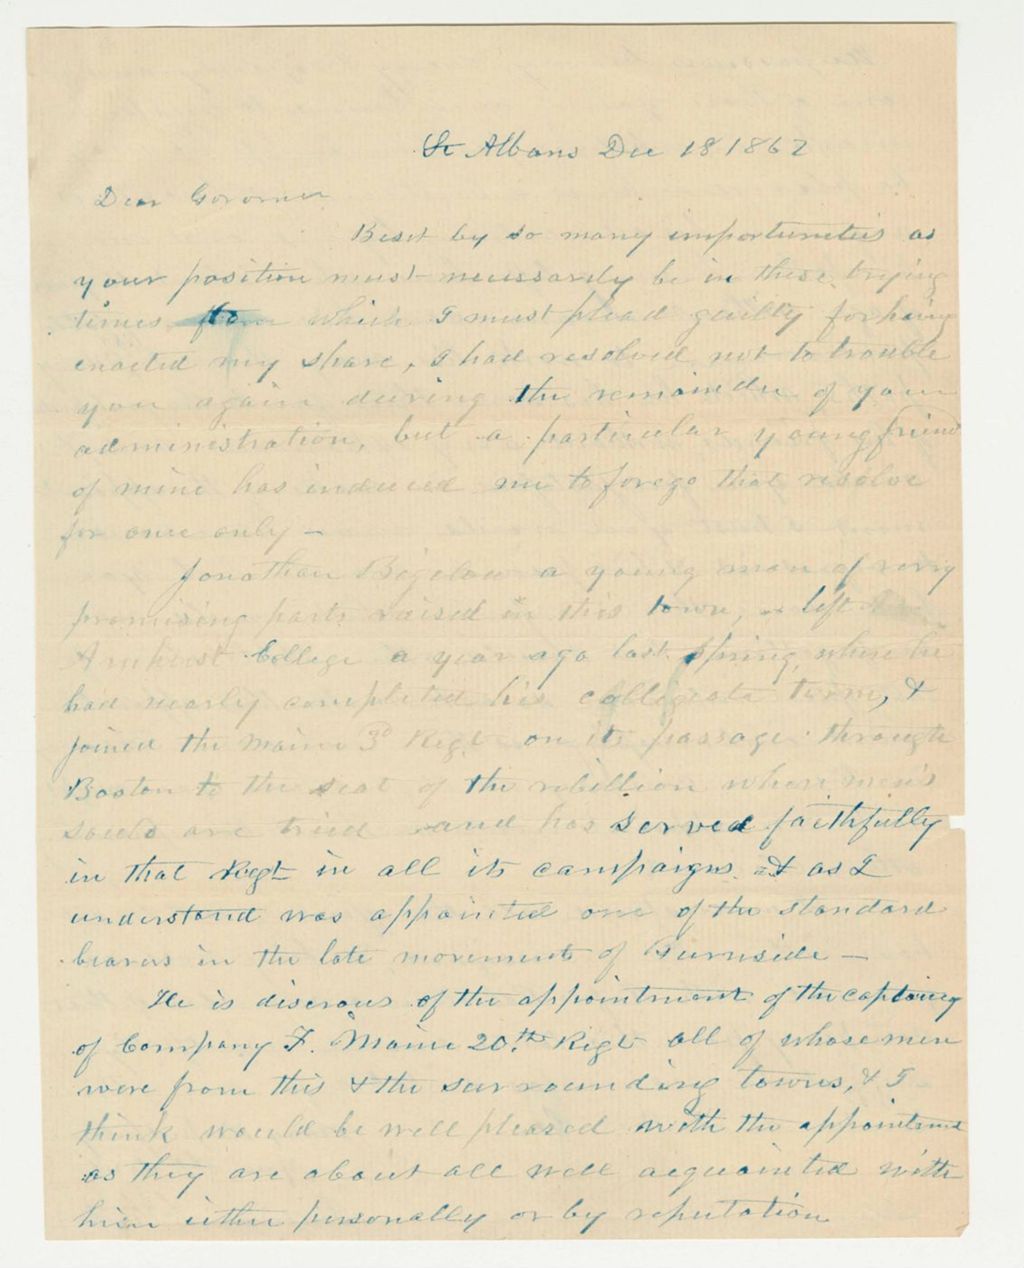 St Albans Dec 18 1862
Dear Governor
Besit by so many importunitis as
your position must necessarily be in these trying
times which I must plead guilty for having
enacted my share, I had resolved not to trouble
you again during the remainder of your
administration, but a particular young friend
of mine has induced me to forego that resolve
for once only —
Jonathan Bigelow a young man of very
promising parts raised in this town, left
Amherst College a year ago last Spring, where he
had nearly completed his collegiate term, &
joined the Maine 3d Regt on its passage through
Boston to the seat of the rebellion where men's
souls are tried and has served faithfully
in that Regt in all its campaigns & as I
understand was appointed one of the standard
bearers in the late movements of Burnside —
He is diserous of the appointment of the captaincy
of Company F. Maine 20th Regt all of whose men
were from this & the surrounding towns, & I
think would be well pleased with the appointment
as they are about all well acquainted with
him either personally or by reputation